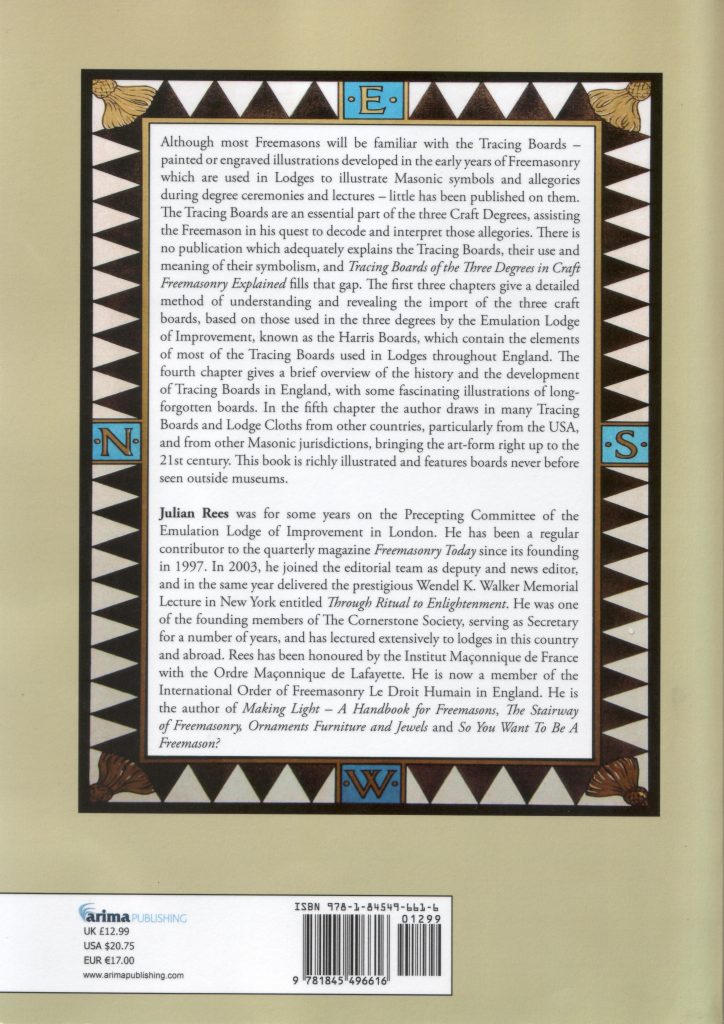 ·E·
Although most Freemasons will be familiar with the Tracing Boards –
painted or engraved illustrations developed in the early years of Freemasonry
which are used in Lodges to illustrate Masonic symbols and allegories
during degree ceremonies and lectures – little has been published on them.
The Tracing Boards are an essential part of the three Craft Degrees, assisting
the Freemason in his quest to decode and interpret those allegories. There is
no publication which adequately explains the Tracing Boards, their use and
meaning of their symbolism, and Tracing Boards of the Three Degrees in Craft
Freemasonry Explained fills that gap. The first three chapters give a detailed
method of understanding and revealing the import of the three craft
boards, based on those used in the three degrees by the Emulation Lodge
of Improvement, known as the Harris Boards, which contain the elements
of most of the Tracing Boards used in Lodges throughout England. The
fourth chapter gives a brief overview of the history and the development
of Tracing Boards in England, with some fascinating illustrations of long-
forgotten boards. In the fifth chapter the author draws in many Tracing
Boards and Lodge Cloths from other countries, particularly from the USA,
and from other Masonic jurisdictions, bringing the art-form right up to the
21st century. This book is richly illustrated and features boards never before
seen outside museums.
·N·
·S·
Julian Rees was for some years on the Precepting Committee of the
Emulation Lodge of Improvement in London. He has been a regular
contributor to the quarterly magazine Freemasonry Today since its founding
in 1997. In 2003, he joined the editorial team as deputy and news editor,
and in the same year delivered the prestigious Wendel K. Walker Memorial
Lecture in New York entitled Through Ritual to Enlightenment. He was one
of the founding members of The Cornerstone Society, serving as Secretary
for a number of years, and has lectured extensively to lodges in this country
and abroad. Rees has been honoured by the Institut Maçonnique de France
with the Ordre Maçonnique de Lafayette. He is now a member of the
International Order of Freemasonry Le Droit Humain in England. He is
the author of Making Light – A Handbook for Freemasons, The Stairway
of Freemasonry, Ornaments Furniture and Jewels and So You Want To Be A
Freemason?
·W·
arima PUBLISHING
UK £12.99
USA $20.75
EUR €17.00
www.arimapublishing.com
ISBN 978-1-84549-661-6
01299
9 781845 496616